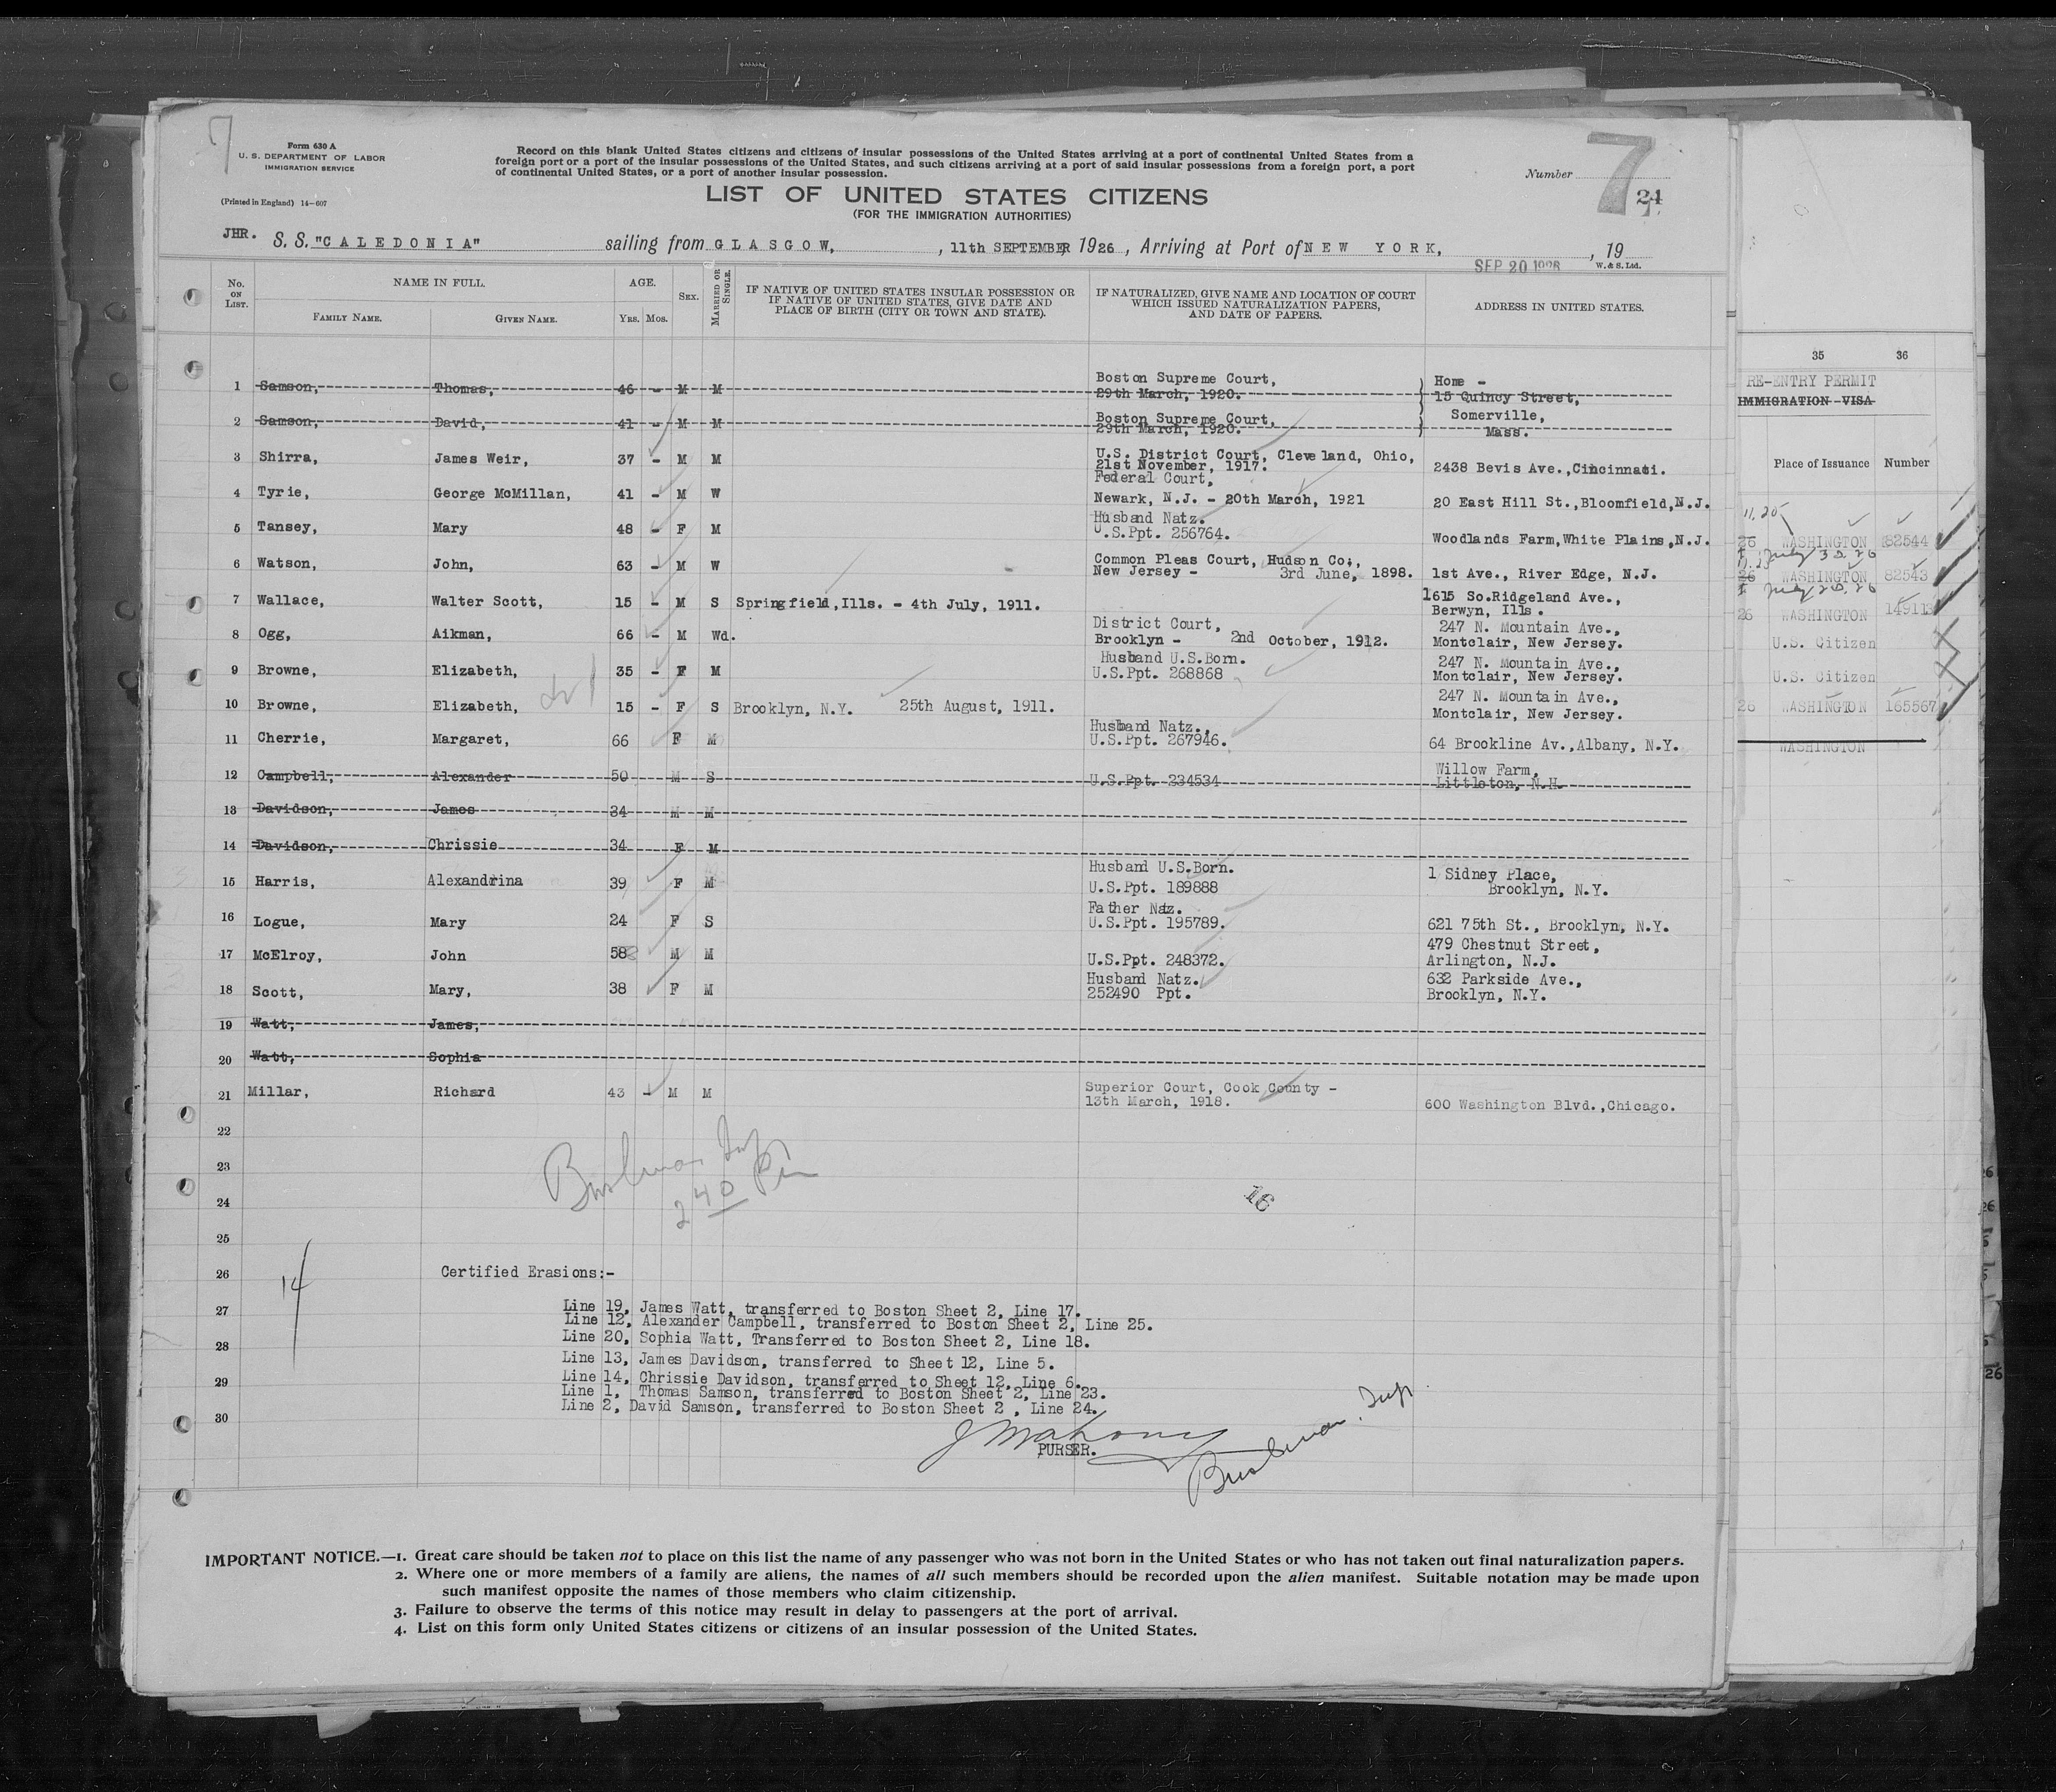 7
Form 630 A
U. S. DEPARTMENT OF LABOR
IMMIGRATION SERVICE
(Printed in England) 14-607
Record on this blank United States citizens and citizens of insular possessions of the United States arriving at a port of continental United States from a
foreign port or a port of the insular possessions of the United States, and such citizens arriving at a port of said insular possessions from a foreign port, a port
of continental United States, or a port of another insular possession.
Number
7
24
LIST OF UNITED STATES CITIZENS
(FOR THE IMMIGRATION AUTHORITIES)
JHR. S. S. "CALEDONIA" sailing from GLASGOW, , 11th SEPTEMBER, 1926 , Arriving at Port of NEW YORK, , 19
SEP 20 1926
W. & S. Ltd.
No. ON LIST. NAME IN FULL. AGE. SEX. MARRIED OR SINGLE. IF NATIVE OF UNITED STATES INSULAR POSSESSION OR IF NATIVE OF UNITED STATES, GIVE DATE AND PLACE OF BIRTH (CITY OR TOWN AND STATE). IF NATURALIZED, GIVE NAME AND LOCATION OF COURT WHICH ISSUED NATURALIZATION PAPERS, AND DATE OF PAPERS. ADDRESS IN UNITED STATES.
FAMILY NAME. GIVEN NAME. YRS. MOS.
1 Samson, Thomas, 46 - M M Boston Supreme Court, 29th March, 1920. Home - 15 Quincy Street,
2 Samson, David, 41 - M M Boston Supreme Court, 29th March, 1920. Somerville, Mass.
3 Shirra, James Weir, 37 - M M U.S. District Court, Cleveland, Ohio, 21st November, 1917. 2438 Bevis Ave.,Cincinnati.
4 Tyrie, George McMillan, 41 - M W Federal Court, Newark, N.J. - 20th March, 1921 20 East Hill St.,Bloomfield,N.J.
5 Tansey, Mary 48 - F M Husband Natz. U.S.Ppt. 256764. Woodlands Farm,White Plains,N.J.
6 Watson, John, 63 - M W Common Pleas Court, Hudson Co., New Jersey - 3rd June, 1898. 1st Ave., River Edge, N.J.
7 Wallace, Walter Scott, 15 - M S Springfield,Ills. - 4th July, 1911. 1615 So.Ridgeland Ave., Berwyn, Ills.
8 Ogg, Aikman, 66 - M Wd. District Court, Brooklyn - 2nd October, 1912. 247 N. Mountain Ave., Montclair, New Jersey.
9 Browne, Elizabeth, 35 - F M Husband U.S.Born. U.S.Ppt. 268868 247 N. Mountain Ave., Montclair, New Jersey.
10 Browne, Elizabeth, 15 - F S Brooklyn, N.Y. 25th August, 1911. 247 N. Mountain Ave., Montclair, New Jersey.
11 Cherrie, Margaret, 66 F M Husband Natz., U.S.Ppt. 267946. 64 Brookline Av.,Albany, N.Y.
12 Campbell, Alexander 50 M S U.S.Ppt. 234534 Willow Farm, Littleton, N.H.
13 Davidson, James 34 M M
14 Davidson, Chrissie 34 F M
15 Harris, Alexandrina 39 F M Husband U.S.Born. U.S.Ppt. 189888 1 Sidney Place, Brooklyn, N.Y.
16 Logue, Mary 24 F S Father Natz. U.S.Ppt. 195789. 621 75th St., Brooklyn, N.Y.
17 McElroy, John 58 M M U.S.Ppt. 248372. 479 Chestnut Street, Arlington, N.J.
18 Scott, Mary, 38 F M Husband Natz. 252490 Ppt. 632 Parkside Ave., Brooklyn, N.Y.
19 Watt, James,
20 Watt, Sophia
21 Millar, Richard 43 - M M Superior Court, Cook County - 13th March, 1918. 600 Washington Blvd.,Chicago.
22
23
24
25
26
27
28
29
30
2 40 Pm
16
14
Certified Erasions:-
Line 19, James Watt, transferred to Boston Sheet 2, Line 17.
Line 12, Alexander Campbell, transferred to Boston Sheet 2, Line 25.
Line 20, Sophia Watt, Transferred to Boston Sheet 2, Line 18.
Line 13, James Davidson, transferred to Sheet 12, Line 5.
Line 14, Chrissie Davidson, transferred to Sheet 12, Line 6.
Line 1, Thomas Samson, transferred to Boston Sheet 2, Line 23.
Line 2, David Samson, transferred to Boston Sheet 2 , Line 24.
J Mahony
PURSER.
IMPORTANT NOTICE.—1. Great care should be taken not to place on this list the name of any passenger who was not born in the United States or who has not taken out final naturalization papers.
2. Where one or more members of a family are aliens, the names of all such members should be recorded upon the alien manifest. Suitable notation may be made upon
such manifest opposite the names of those members who claim citizenship.
3. Failure to observe the terms of this notice may result in delay to passengers at the port of arrival.
4. List on this form only United States citizens or citizens of an insular possession of the United States.
35 36
RE-ENTRY PERMIT
IMMIGRATION VISA
Place of Issuance Number
26 WASHINGTON 82544
26 WASHINGTON 82543
26 WASHINGTON 149113
U.S. Citizen
U.S. Citizen
26 WASHINGTON 165567
WASHINGTON